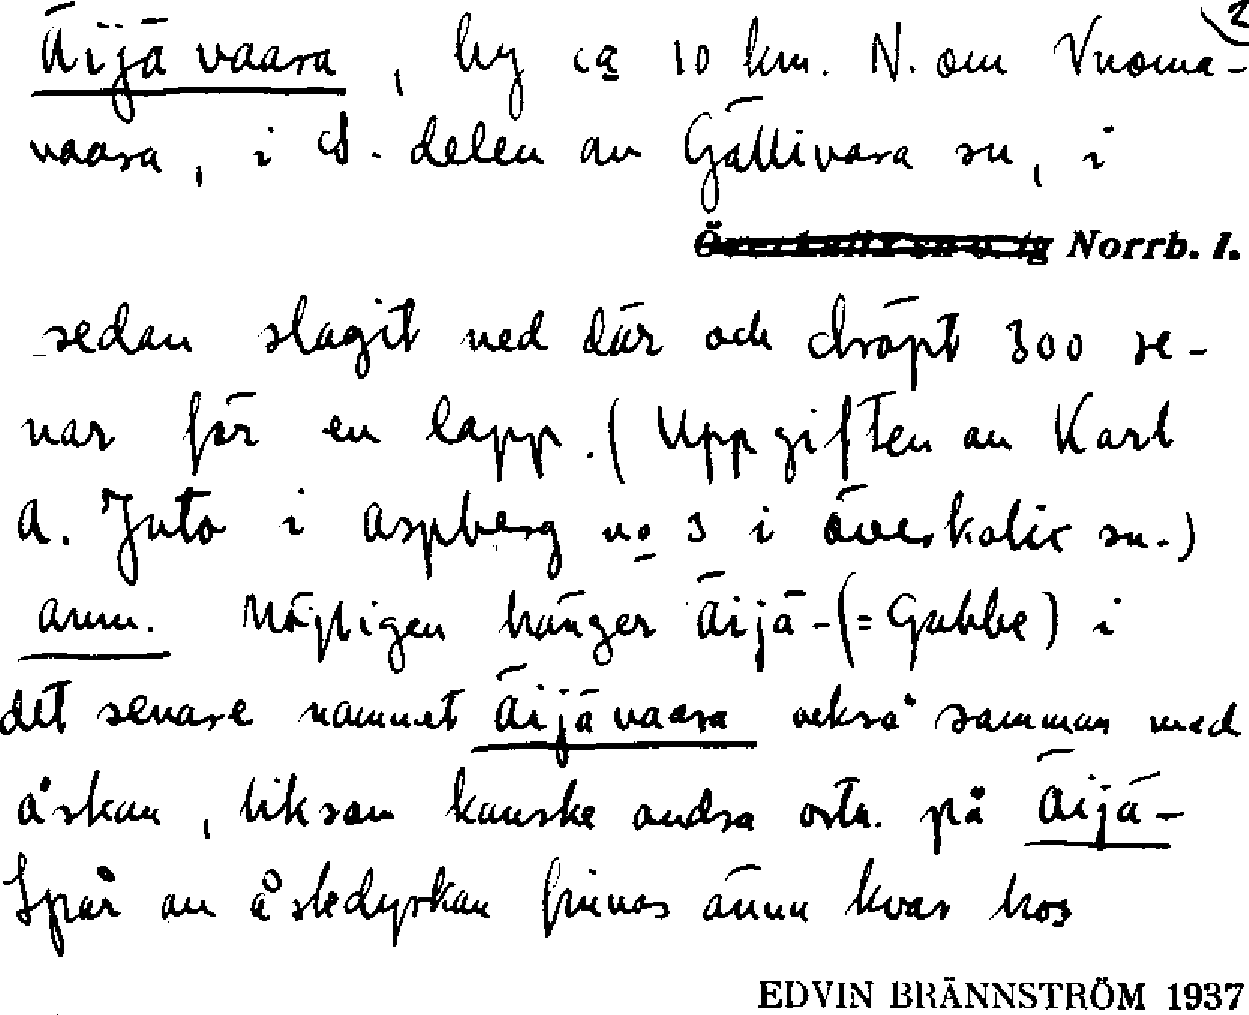 2
Äijävaara, by ca 10 km. N. om Vuoma-
vaara, i S. delen av Gällivara sn, i
Överkalix sn o. tg Norrb. l.
sedan slagit ned där och dräpt 300 re-
nar för en lapp. (Uppgiften av Karl
A. Juto i Aspberg no 3 i Överkalix sn.)
Anm. Möjligen hänger Äijä- (= Gubbe) i
det senare namnet Äijävaara också samman med
åskan, liksom kanske andra ortn. på Äijä-
Spår av åskdyrkan finnas ännu kvar hos
EDVIN BRÄNNSTRÖM 1937